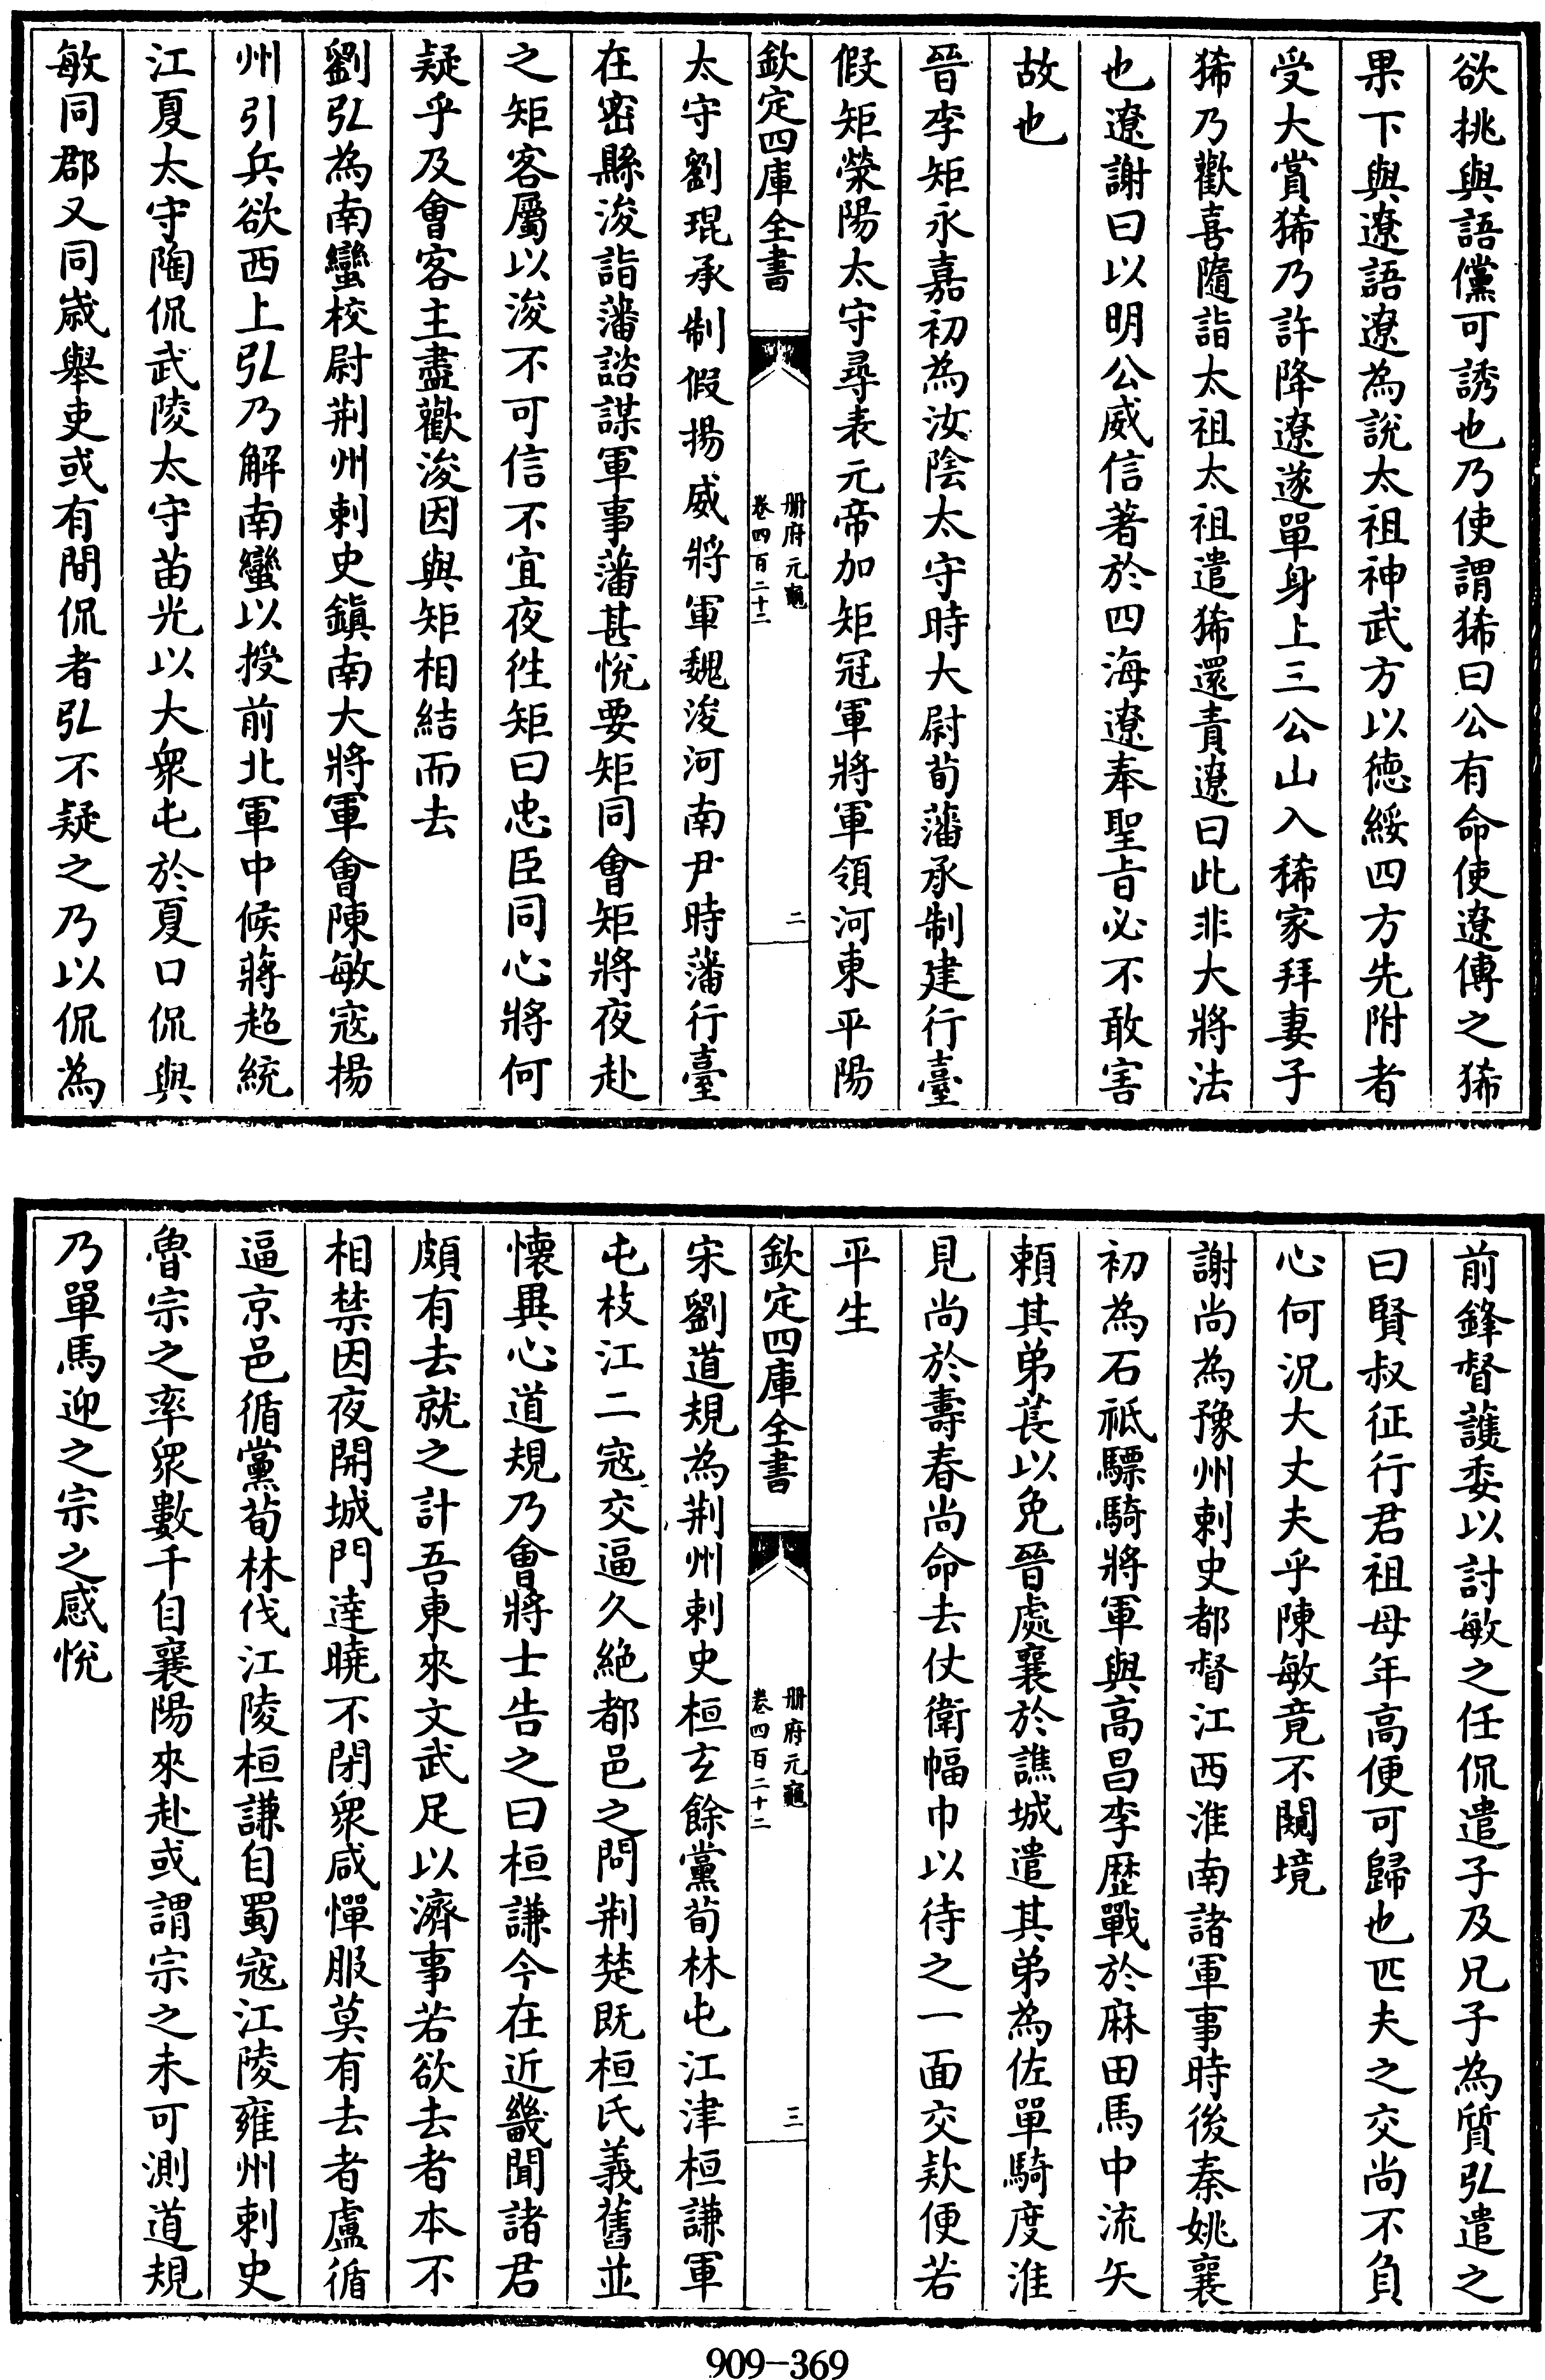 欲挑與語儻可誘也乃使謂狶曰公有命使遼傳之狶
果下與遼語遼為說太祖神武方以德綏四方先附者
受大賞狶乃許降遼遂單身上三公山入稀家拜妻子
狶乃歡喜隨詣太祖太祖遣狶還責遼曰此非大將法
也遼謝曰以明公威信著於四海遼奉聖旨必不敢害
故也
晉李矩永嘉初為汝陰太守時大尉荀藩承制建行臺
假矩滎陽太守尋表元帝加矩冠軍將軍領河東平陽
欽定四庫全書
册府元龜
卷四百二十二
二
太守劉琨承制假揚威將軍魏浚河南尹時藩行臺
在密縣浚詣藩諮謀軍事藩甚悅要矩同會矩將夜赴
之矩客屬以浚不可信不宜夜徃矩曰忠臣同心將何
疑乎及會客主盡歡浚因與矩相結而去
劉弘為南蠻校尉荆州刺史鎮南大將軍會陳敏寇揚
州引兵欲西上弘乃解南蠻以授前北軍中候蔣超統
江夏太守陶侃武陵太守苗光以大衆屯於夏口侃與
敏同郡又同歲舉吏或有間侃者弘不疑之乃以侃為
前鋒督護委以討敏之任侃遣子及兄子為質弘遣之
曰賢叔征行君祖母年高便可歸也匹夫之交尚不負
心何況大丈夫乎陳敏竟不闚境
謝尚為豫州刺史都督江西淮南諸軍事時後秦姚襄
初為石祗驃騎將軍與高昌李歷戰於麻田馬中流矢
賴其弟萇以免晉處襄於譙城遣其弟為佐單騎度淮
見尚於壽春尚命去仗衛幅巾以待之一面交欵便若
平生
欽定四庫全書
册府元龜
卷四百二十二
三
宋劉道規為荆州刺史桓玄餘黨荀林屯江津桓謙軍
屯枝江二寇交逼久絶都邑之問荆楚既桓氏義舊並
懷異心道規乃會將士告之曰桓謙今在近畿聞諸君
頗有去就之計吾東來文武足以濟事若欲去者本不
相禁因夜開城門逹曉不閉衆咸憚服莫有去者盧循
逼京邑循黨荀林伐江陵桓謙自蜀寇江陵雍州刺史
魯宗之率衆數千自襄陽來赴或謂宗之未可測道規
乃單馬迎之宗之感悅
909-369